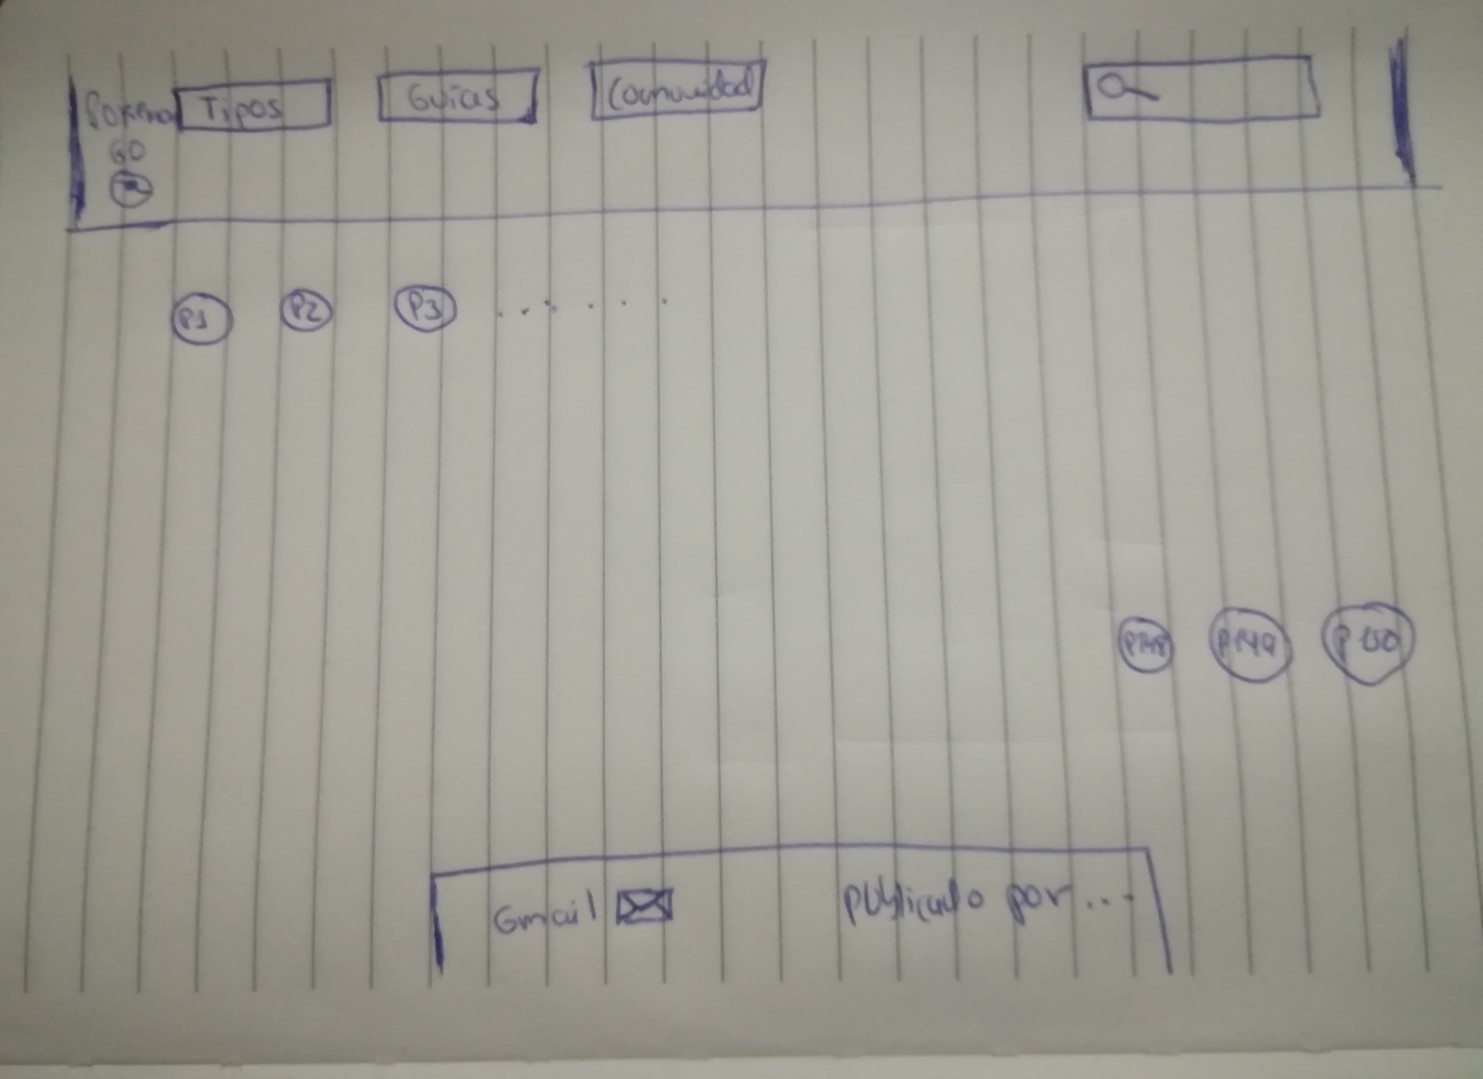 Pokemon
GO
Tipos
Guias
Comunidad
P1 P2 P3 . . . . . .
P148 P149 P150
Gmail
publicado por...